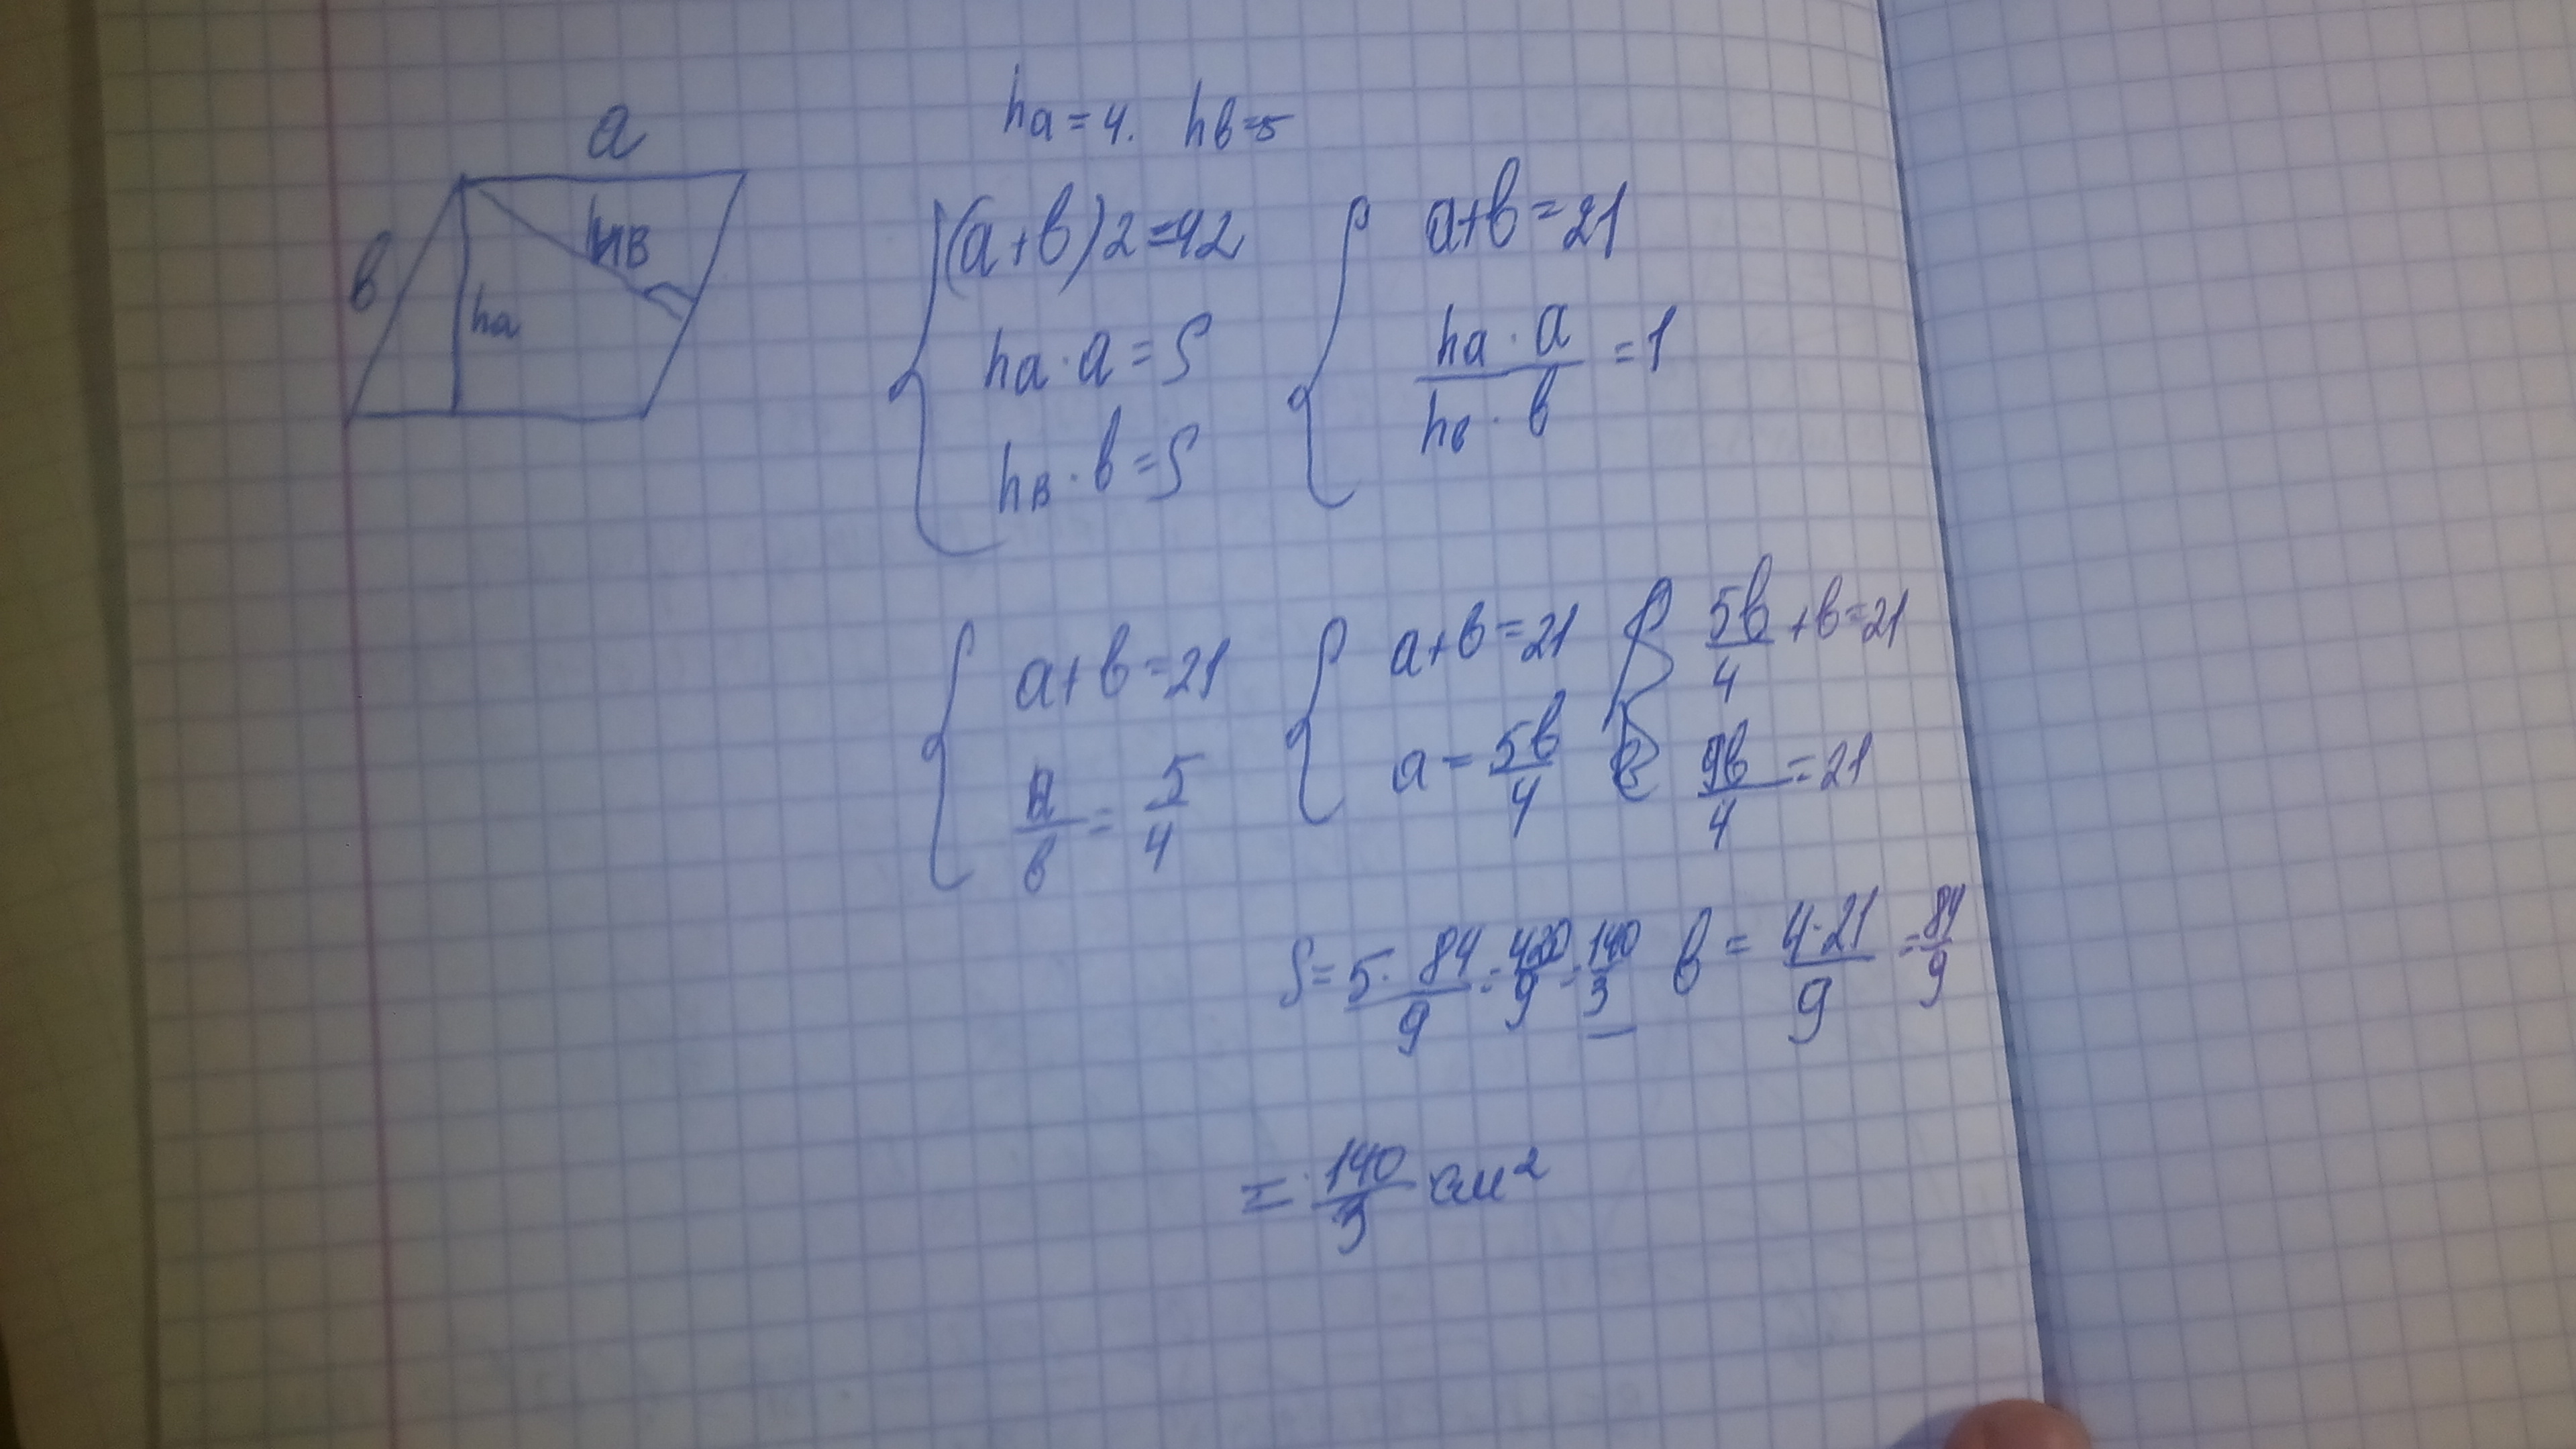 a
в
hв
ha
ha = 4. hв = 5
(a+в)2=42
ha · a = S
hв · в = S
a+в=21
ha · a / hв · в = 1
a+в=21
a/в = 5/4
a+в=21
a = 5в/4
5в/4 + в = 21
9в/4 = 21
S = 5·84/9 = 420/9 = 140/3
в = 4·21/9 = 84/9
= 140/3 см²